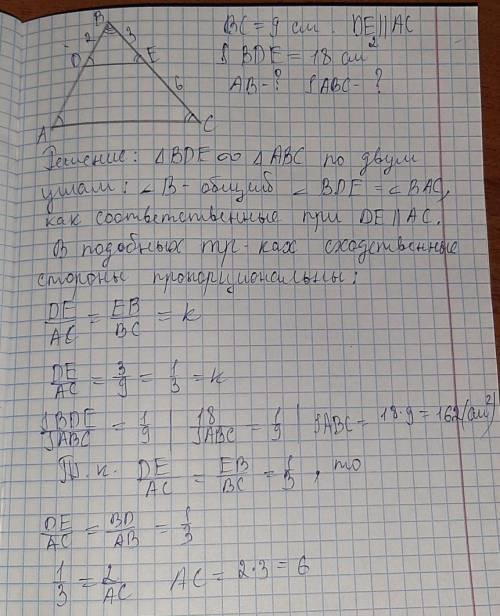 B
2 3
D E
6
A C
BC = 9 см. DE || AC
S BDE = 18 см²
AB - ? S ABC - ?
Решение: △BDE ∞ △ABC по двум
углам: ∠B - общий ∠BDE = ∠BAC,
как соответственные при DE || AC.
В подобных тр-ках сходственные
стороны пропорциональны:
DE/AC = EB/BC = k
DE/AC = 3/9 = 1/3 = k
S BDE/S ABC = 1/9 | 18/S ABC = 1/9 | S ABC = 18·9 = 162 (см²)
Т.к. DE/AC = EB/BC = 1/3, то
DE/AC = BD/AB = 1/3
1/3 = 2/AC AC = 2·3 = 6